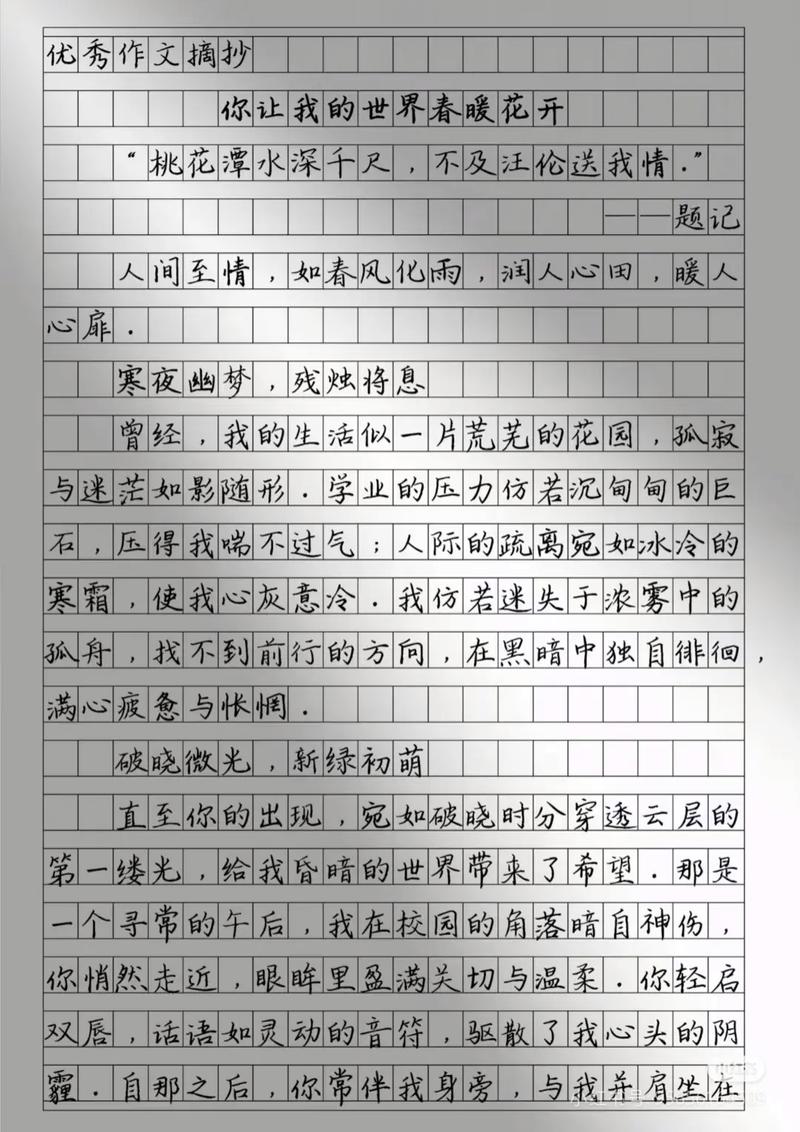 优秀作文摘抄
你让我的世界春暖花开
“桃花潭水深千尺，不及汪伦送我情.”
——题记
人间至情，如春风化雨，润人心田，暖人
心扉.
寒夜幽梦，残烛将息
曾经，我的生活似一片荒芜的花园，孤寂
与迷茫如影随形.学业的压力仿若沉甸甸的巨
石，压得我喘不过气；人际的疏离宛如冰冷的
寒霜，使我心灰意冷.我仿若迷失于浓雾中的
孤舟，找不到前行的方向，在黑暗中独自徘徊，
满心疲惫与怅惘.
破晓微光，新绿初萌
直至你的出现，宛如破晓时分穿透云层的
第一缕光，给我昏暗的世界带来了希望.那是
一个寻常的午后，我在校园的角落暗自神伤，
你悄然走近，眼眸里盈满关切与温柔.你轻启
双唇，话语如灵动的音符，驱散了我心头的阴
霾.自那之后，你常伴我身旁，与我并肩坐在
小红书